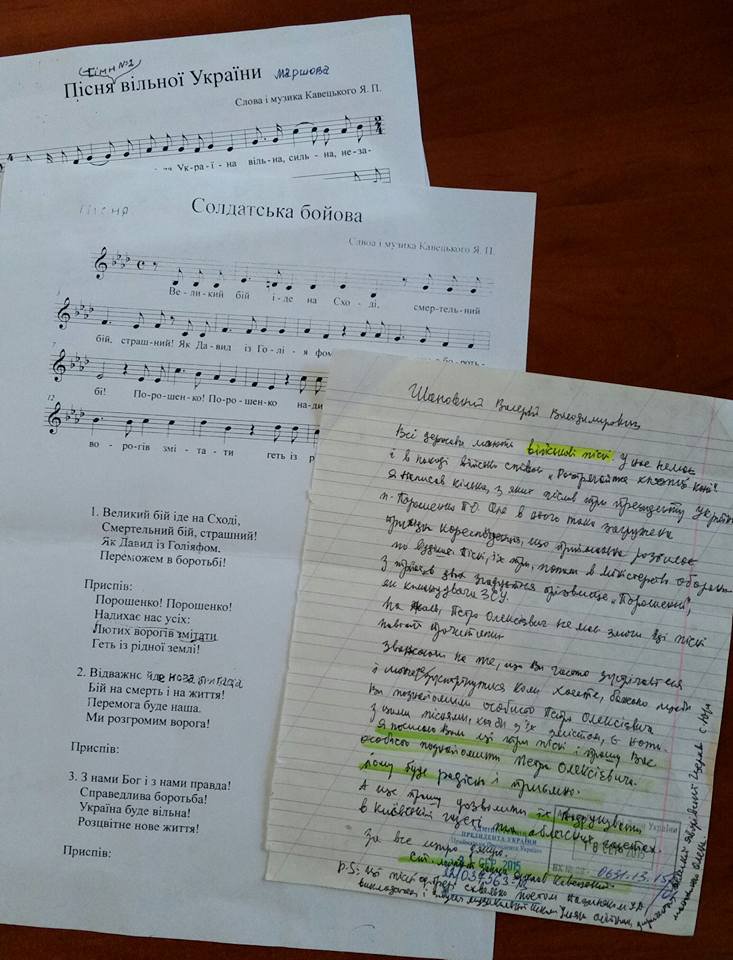 Гімн №2
Пісня вільної України маршова
Слова і музика Кавецького Я. П.
Укра - ї - на віль - на, силь - на, не - за-
Пісня
Солдатська бойова
Слвоа і музика Кавецького Я. П.
Ве - ли - кий бій і - де на Схо - ді, смер - тель - ний
бій, страш - ний! Як Да - вид із Го - лі - я фом
бі! По - ро - шен - ко! По - ро - шен - ко на - ди
во - ро - гів змі - та - ти геть із р
1. Великий бій іде на Сході,
Смертельний бій, страшний!
Як Давид із Голіяфом.
Переможем в боротьбі!
Приспів:
Порошенко! Порошенко!
Надихає нас усіх:
Лютих ворогів змітати
Геть із рідної землі!
2. Відважнє
Бій на смерть і на життя!
Перемога буде наша.
Ми розгромим ворога!
Приспів:
3. З нами Бог і з нами правда!
Справедлива боротьба!
Україна буде вільна!
Розцвітне нове життя!
Приспів:
Шановний Валерій Володимирович
Всі держави мають військові пісні. У нас немає
і в поході військо співає „Розпрягайте хлопці коні"
Я написав кілька, з яких післав три президенту України
п. Порошенко П.О. Але в його така загружена
по відділах. Пісні, їх три, попали в міністерство оборони
З трьох двох згадується прізвище „Порошенко",
як командувача ЗСУ.
На жаль, Петро Олексієвич не мав змоги ці пісні
навіть прочитати
Зважаючи на те, що Ви часто зустрічаєтеся
і можете зустрінутися коли хочете, бажаю щоби
Ви познайомили особисто Петра Олексієвича
з цими піснями, хоч би з їх змістом, є ноти.
Я посилаю Вам ці три пісні і прошу Вас
особисто познайомити Петра Олексієвича.
Йому буде радісно і приємно.
А ще прошу дозволити їх надрукувати
в Київській газеті та обласних газетах.
За все щиро дякую.
ПРЕЗИДЕНТА УКРАЇНИ
СЕР 2015
України
18 СЕР 2015
0631-13-15
P.S: Ці пісні